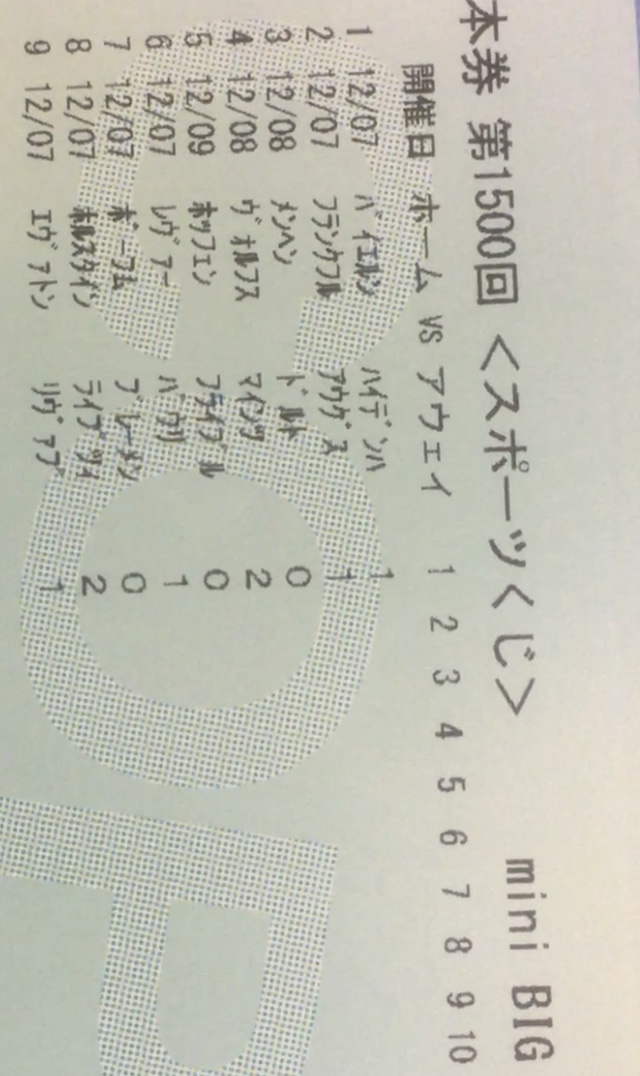 本券 第1500回 <スポーツくじ> mini BIG
開催日 ホーム VS アウェイ 1 2 3 4 5 6 7 8 9 10
1 12/07 バイエルン ハイデンハ 1
2 12/07 フランクフル アウグス 1
3 12/08 メンヘン ドルト 0
4 12/08 ヴォルフス マインツ 2
5 12/09 ホッフェン フライブル 0
6 12/07 レヴァー パウリ 1
7 12/07 ボーフム ブレーメン 0
8 12/07 ホルスタイン ライプツィ 2
9 12/07 エヴァトン リヴァプ 1